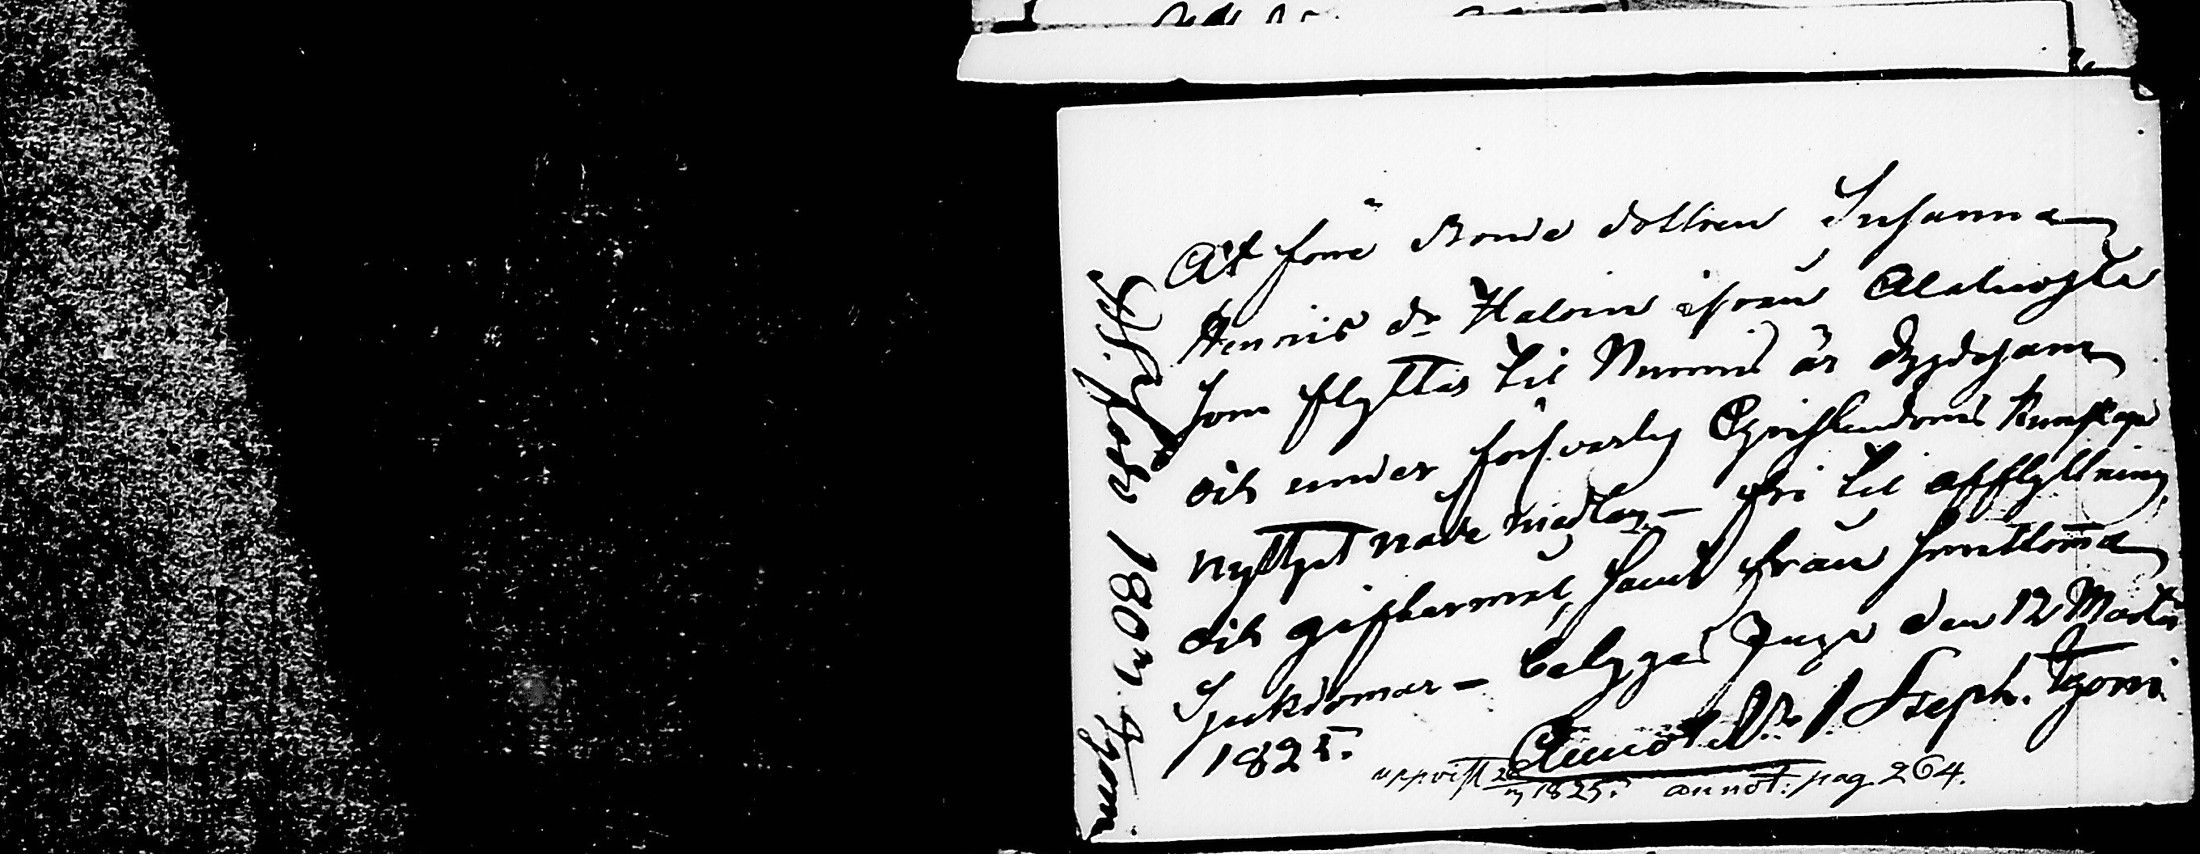 At förre Bonde dottren Susanna
Henrics dr Haloin ifrån Alaluoglia
som flyttar til Nummis är dygdesam
och under försvarlig Christendoms kunskap
nyttjat nådemedlen – fri til afflyttning,
och giftermål, samt från smittosama
Sjukdomar – betygas Junga den 12 Martii
1825.
Steph. Tgorn.
uppvist 1825. annot: pag. 264.
född 1803